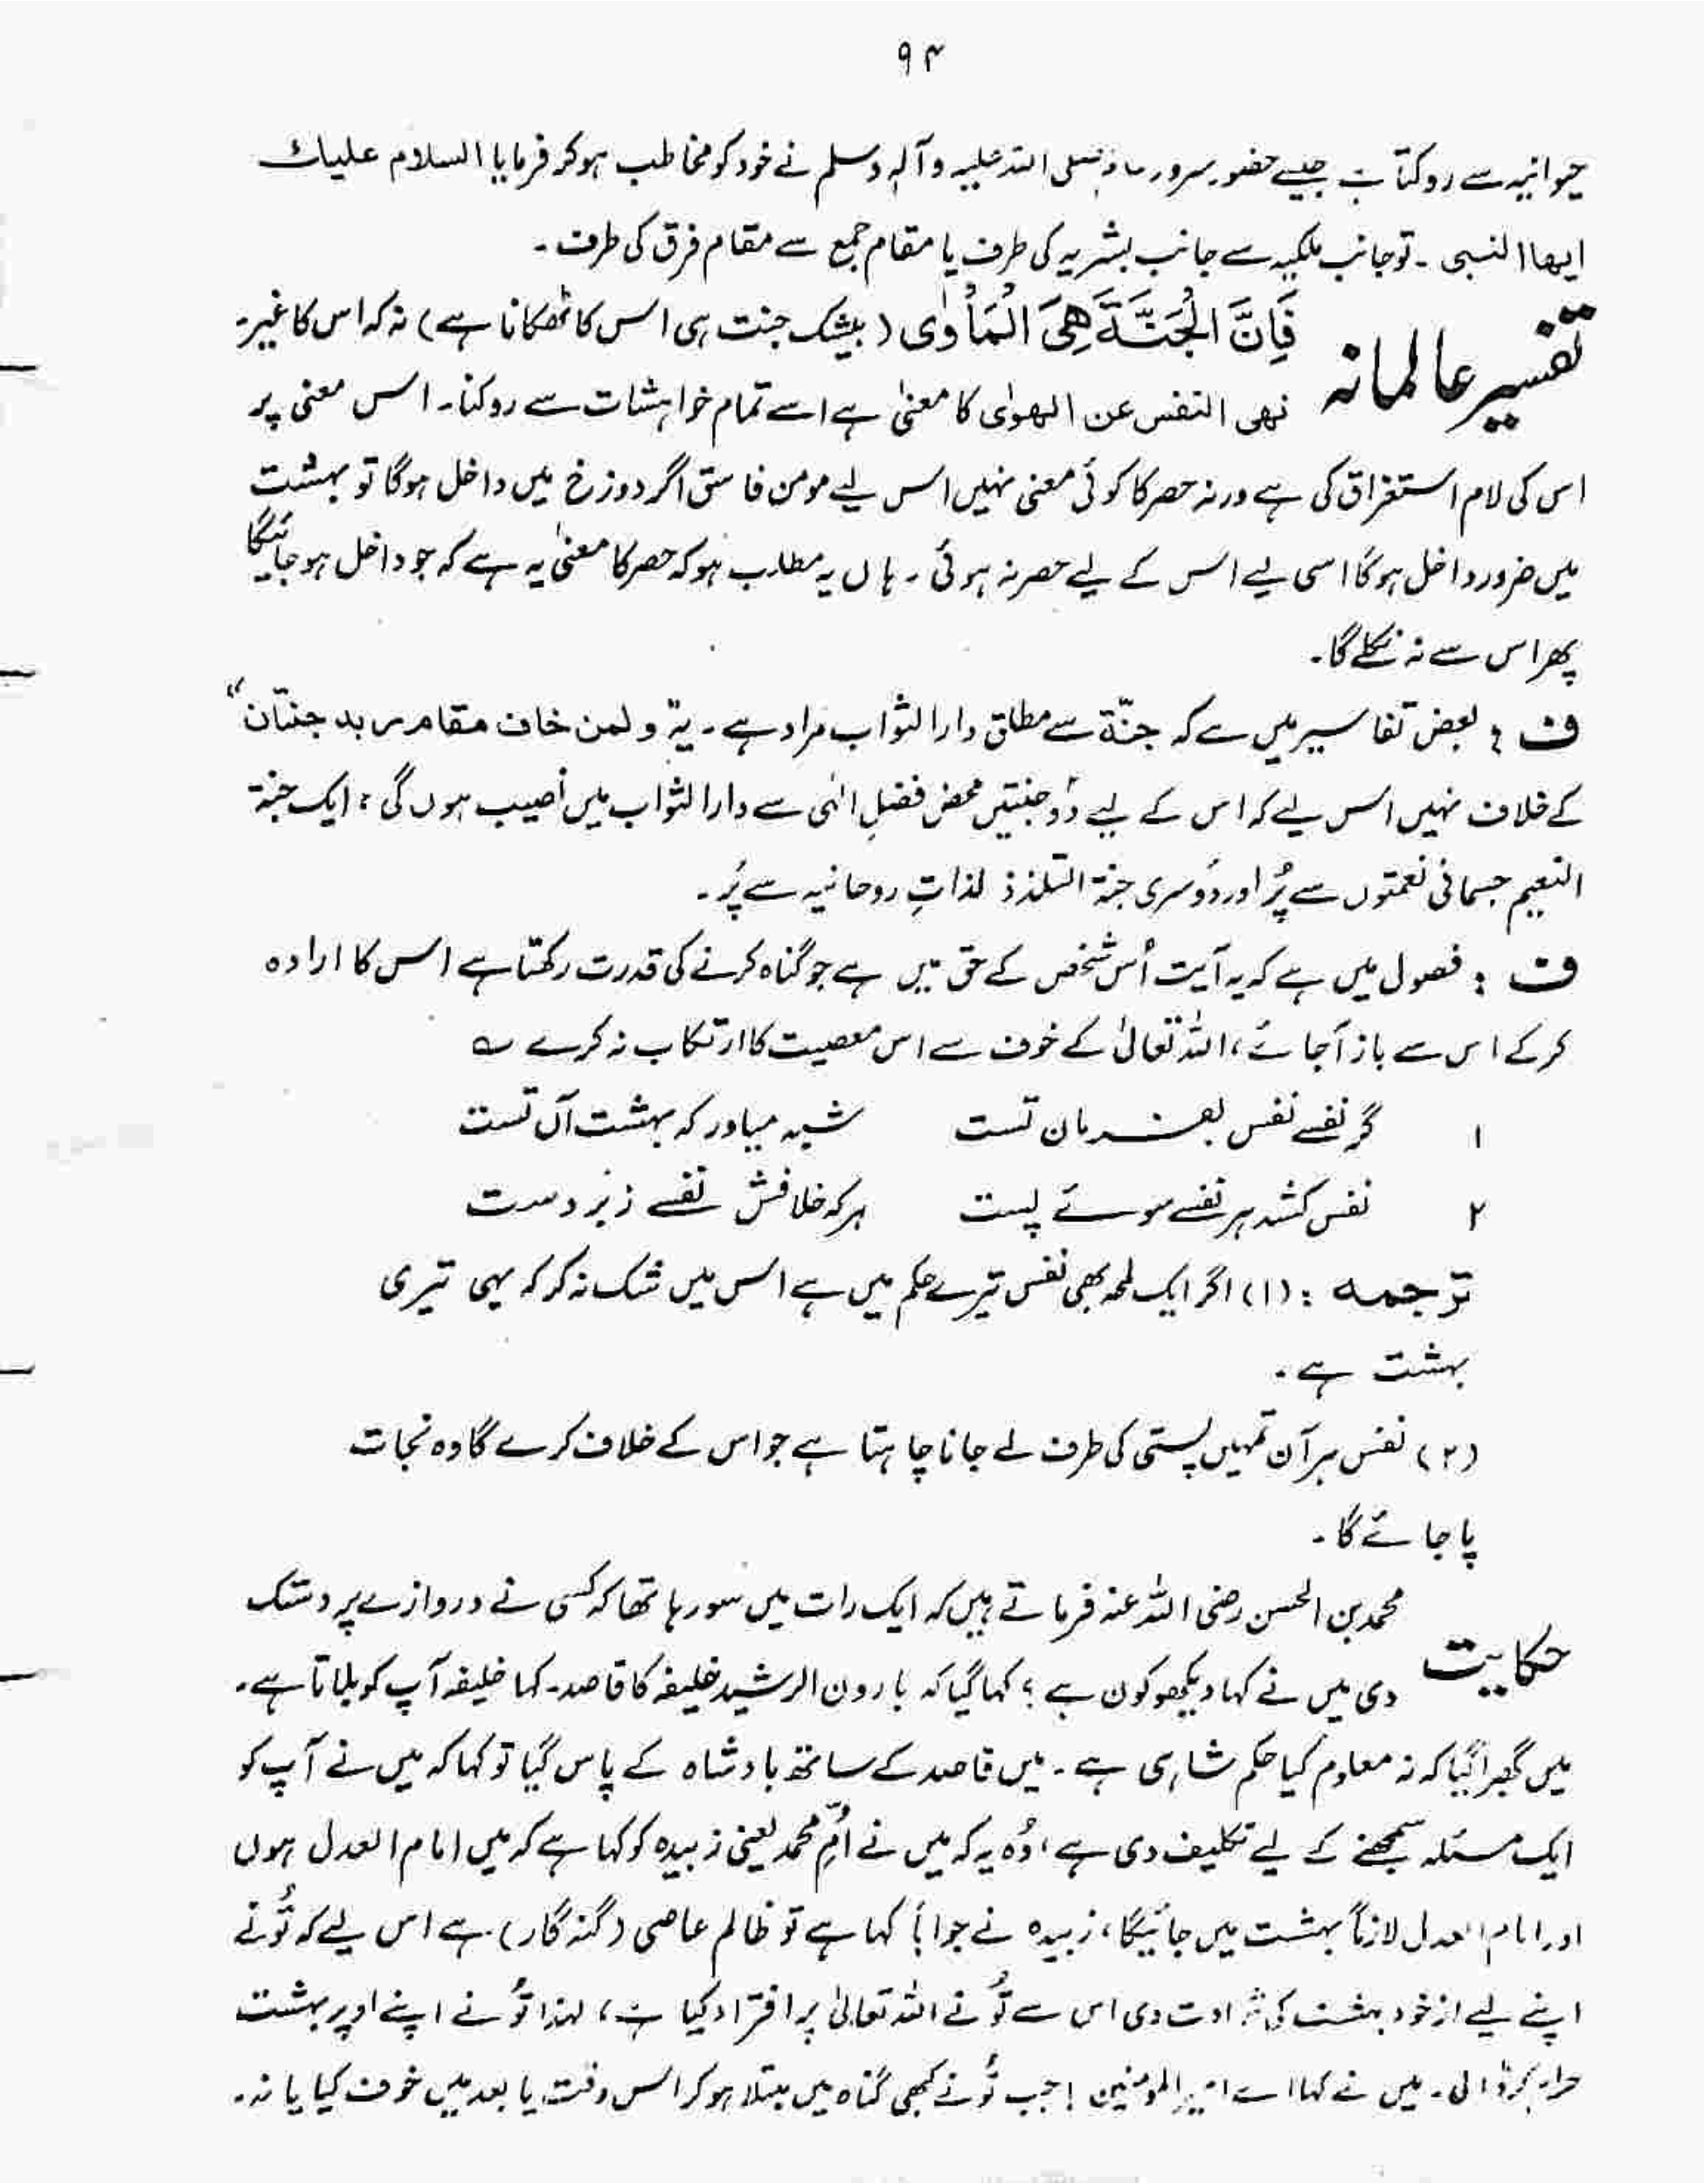 ۹۴
حیوانیہ سے روکتا ہے جیسے حضور سرور عالم صلی اللہ علیہ وآلہٖ وسلم نے خود کو مخاطب ہو کر فرمایا السلام علیك
ایھا النبی ۔ تو جانب ملکیہ سے جانب بشریہ کی طرف یا مقام جمع سے مقام فرق کی طرف ۔
تفسیر عالمانہ فَاِنَّ الْجَنَّةَ هِیَ الْمَاْوٰی ( بیشک جنت ہی اس کا ٹھکانا ہے ) نہ کہ اس کا غیر۔
نھی النفس عن الھوٰی کا معنیٰ ہے اسے تمام خواہشات سے روکنا۔ اس معنی پر
اس کی لام استغراق کی ہے ورنہ حصر کا کوئی معنی نہیں اس لیے مومن فاسق اگر دوزخ میں داخل ہوگا تو بہشت
میں ضرور داخل ہوگا اسی لیے اس کے لیے حصر نہ ہوئی ۔ ہاں یہ مطلب ہو کہ حصر کا معنیٰ یہ ہے کہ جو داخل ہو جائیگا
پھر اس سے نہ نکلے گا۔
ف : بعض تفاسیر میں ہے کہ جنّۃ سے مطلق دار الثواب مراد ہے ۔ یہ و لمن خاف مقام ربہ جنتان"
کے خلاف نہیں اس لیے کہ اس کے لیے دو جنتیں محض فضلِ الٰہی سے دار الثواب میں نصیب ہوں گی : ایک جنۃ
النعیم جسمانی نعمتوں سے پُر اور دُوسری جنۃ التلذذ لذاتِ روحانیہ سے پُر ۔
ف : فصول میں ہے کہ یہ آیت اُس شخص کے حق میں ہے جو گناہ کرنے کی قدرت رکھتا ہے اس کا ارادہ
کر کے اس سے باز آجائے، اللہ تعالیٰ کے خوف سے اس معصیت کا ارتکاب نہ کرے ؎
۱ گر نفسے نفس بفرمان تست شبہ میاور کہ بہشت آں تست
۲ نفس کشد ہر نفسے سوئے پست ہر کہ خلافش نفسے زد برست
ترجمہ : (۱) اگر ایک لمحہ بھی نفس تیرے حکم میں ہے اس میں شک نہ کر کہ یہی تیری
بہشت ہے ۔
(۲) نفس ہر آن تمہیں پستی کی طرف لے جانا چاہتا ہے جو اس کے خلاف کرے گا وہ نجات
پا جائے گا ۔
حکایت محمد بن الحسن رضی اللہ عنہ فرماتے ہیں کہ ایک رات میں سو رہا تھا کہ کسی نے دروازے پر دستک
دی میں نے کہا دیکھو کون ہے ؟ کہا گیا کہ ہارون الرشید خلیفہ کا قاصد۔ کہا خلیفہ آپ کو بلاتا ہے۔
میں گھبرا گیا کہ نہ معلوم کیا حکم شاہی ہے ۔ میں قاصد کے ساتھ بادشاہ کے پاس گیا تو کہا کہ میں نے آپ کو
ایک مسئلہ سمجھنے کے لیے تکلیف دی ہے، وُہ یہ کہ میں نے اُمِّ محمد یعنی زبیدہ کو کہا ہے کہ میں امام العدل ہوں
اور امام العدل لازماً بہشت میں جائیگا، زبیدہ نے جواباً کہا ہے تو ظالم عاصی ( گنہگار ) ہے اس لیے کہ تُو نے
اپنے لیے از خود بہشت کی شہادت دی اس سے تُو نے اللہ تعالیٰ پر افترا کیا ہے، لہذا تُو نے اپنے اوپر بہشت
حرام کر ڈالی ۔ میں نے کہا اے امیر المومنین ! جب تُو نے کبھی گناہ میں مبتلا ہو کر اس وقت یا بعد میں خوف کیا یا نہ ۔